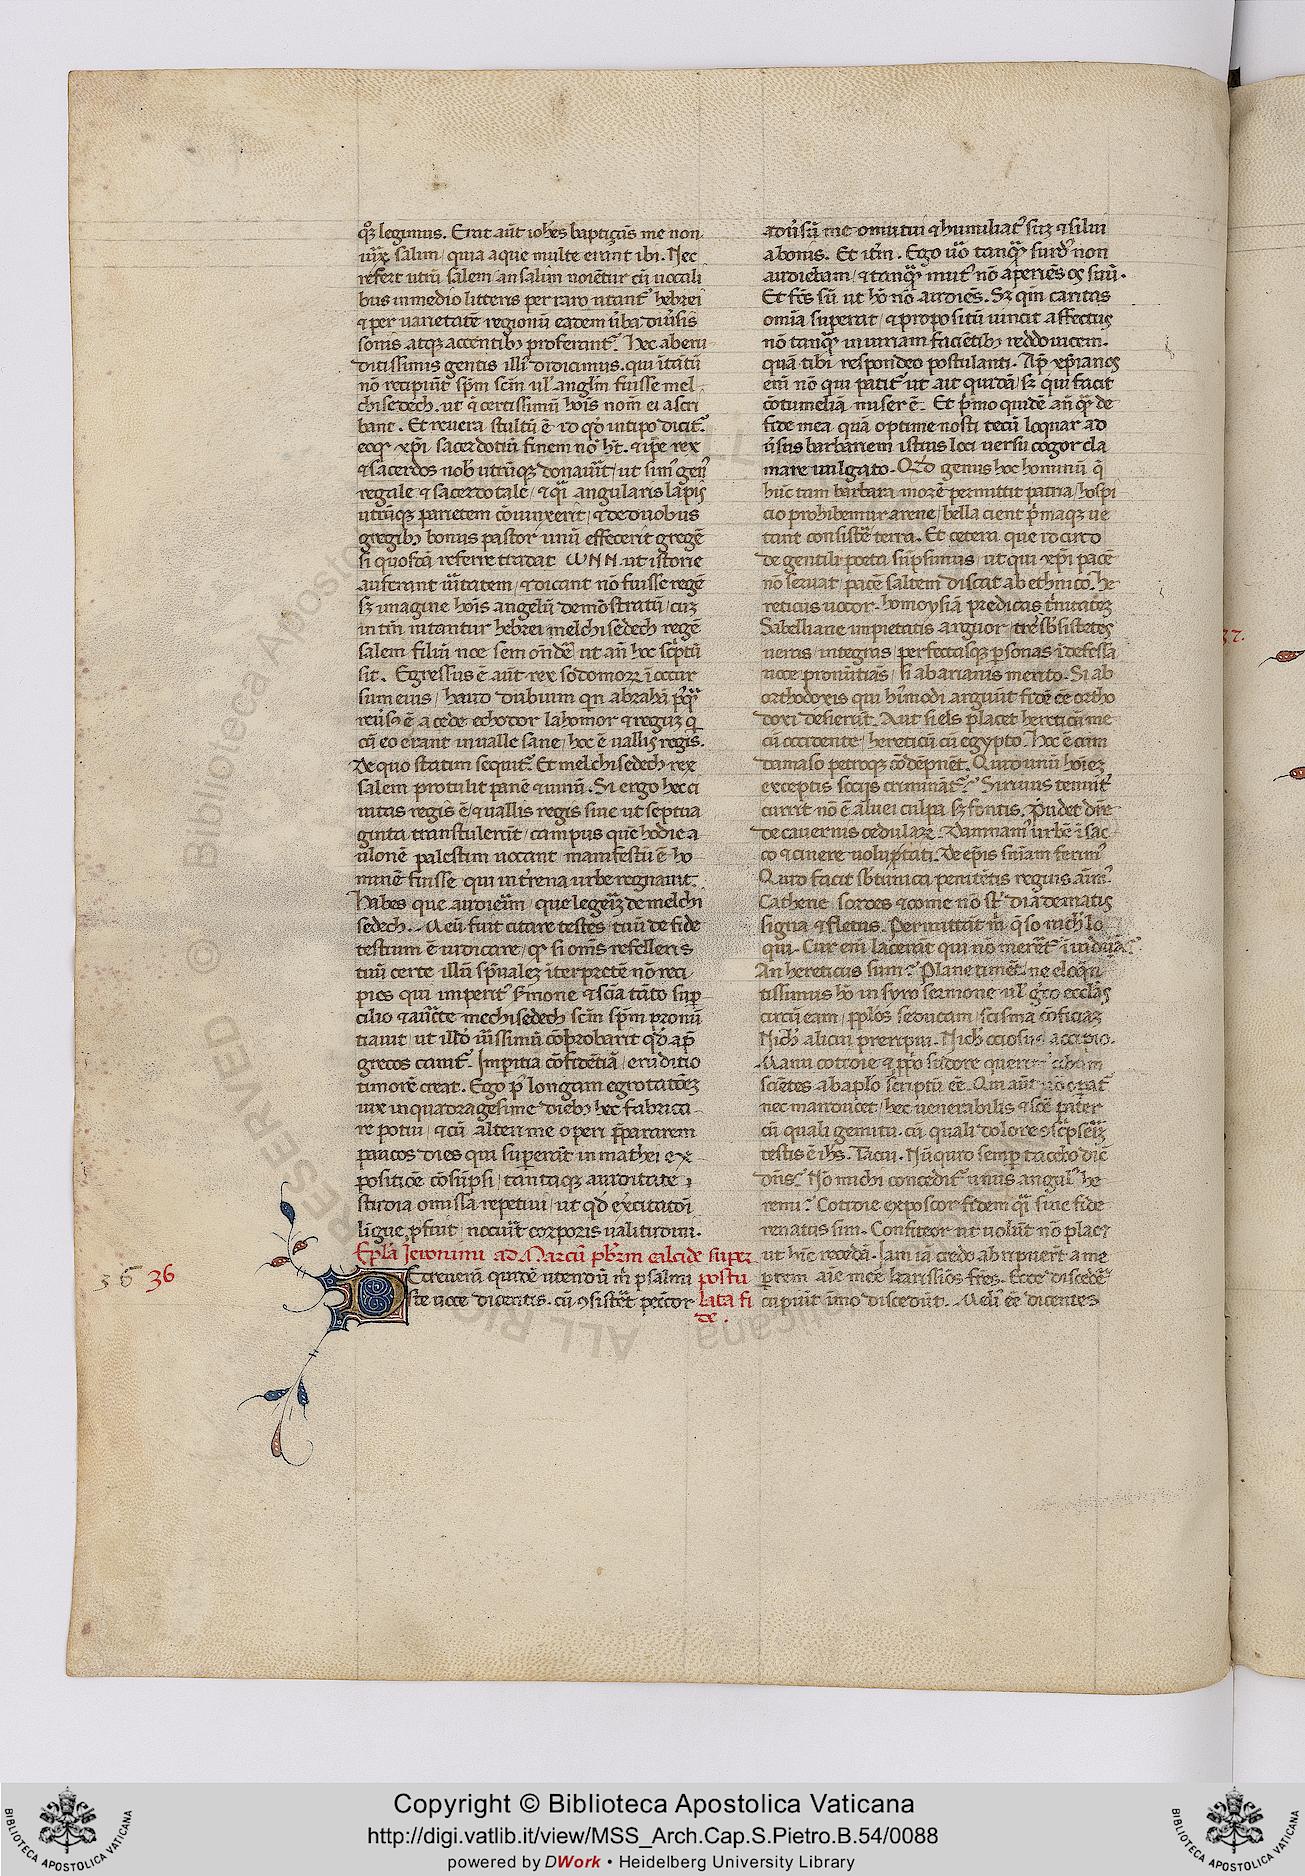 qꝫ legimus. Erat aūt ioh̄es baptiçās me non
iux̄ salim / quia aque multe erant ibi. Nec
refert utrū salem / an salim noīentur cū uocali
bus in medio litteris per raro utant᷒ hebrei
⁊ per uarietatē regionū eadem ūba diūsis
sonis atqꝫ accentibꝫ proferant᷒. Hec ab eru
ditissimis gentis illi᷒ didicimus. qui ītātū
nō recipiūt sp̄m sc̄m ul᷒ angl̄m fuisse mel
chisedech. ut ⁊ certissimū hoīs nom̄ ei ascri
bant. Et reuera stultū ē id qd̓ in tipo dicit᷒
eoqꝫ xp̄i sacerdotiū finem nō h̄t. ⁊ ip̄e rex
⁊ sacerdos nob̓ utrūqꝫ donauīt / ut sim᷒ gen᷒
regale ⁊ sacerdotale / ⁊ q̄i angularis lapis
utrūqꝫ parietem cōiunxerit / ⁊ de duobus
gregibꝫ bonus pastor unū effecerit gregē
si quosdā referre tradat WNN. ut istorie
auferant ūitatem / ⁊ dicant nō fuisse regē
sꝫ imagine hoīs angelū demōstratū / cuꝫ
in tm̄ nitantur hebrei melchisedech regē
salem filiū noe sem on̄dē ut an̄ hoc sc̄ptū
sit. Egressus ē aūt rex sodomoꝝ ī occur
sum eius / haud dubium qn̄ abrahā p̓q̄
reūsꝰ ē a cede echodor lahomor ⁊ regūꝫ q̓
cū eo erant in ualle sane / hoc ē uallis regis.
De quo statim sequit᷒. Et melchisedech rex
salem protulit panē ⁊ uinū. Si ergo hec ci
uitas regis ē / ⁊ uallis regis siue ut septua
ginta transtulerūt / campus quē hodie a
ulonē palestini uocant manifestū ē ho
minē fuisse qui in t̓rena urbe regnauit.
Habes que audieū̓m / que legeīꝫ de melchi
sedech. Meū fuit citare testes / tuū de fide
testium ē iudicare / qꝫ si om̄s refelleris
tuū certe illū sp̄ualeꝫ īterpretē nō reci
pies qui imperit᷒ s̓mone ⁊ sc̄ia tāto sup̓
cilio ⁊ auc̄te mechisedech sc̄m sp̄m pronū
tiauit / ut illd̓ ūissimū cōprobarit qd̓ ap̓
grecos canit᷒. Imperitia cōfidētiā / eruditio
timorē creat. Ego p᷒ longam egrotatōeꝫ
uix in quadragesime diebꝫ hec fabrica
re potui / ⁊ cū alteri me operi p̄pararem
paucos dies qui superāt in mathei ex
positiōe cōsūpsi / tantaqꝫ auiditate
studia omissa repetiui / ut qd̓ ex̓citatōi
ligue p̓fuit / nocuīt corporis ualitudini.
Ep̄la Jeronimi ad Marcū pb̄r̄m calcide super
postu
lata fi
de.
36 36
Ecreuerā quidē utendū m̓ psalmi
ste uoce dicentis. cū 9sistēt pec̄cor
aduīsū me omutui ⁊ humiliat᷒ suꝫ ⁊ silui
a bonis. Et itm̄. Ego ūo tanqꝫ surd᷒ non
audiebam / ⁊ tanqꝫ mut᷒ nō aperiēs os suū.
Et fc̄s sū ut hō nō audiēs. Sꝫ qm̄ caritas
omīa superat / ⁊ propositū uincit affectus
nō tanqꝫ iniuriam faciētibꝫ reddo uicem
quā tibi respondeo postulanti. Ap᷒ xp̄ianos
enī nō qui patit᷒ ut ait quidā / sꝫ qui facit
cōtumeliā miser ē. Et p̓mo quidē an̄ qꝫ de
fide mea quā optime nosti tecū loquar ad
ūsus barbariem istius loci uersu cogor cla
mare uulgato. Qd̓ genus hoc hominū q̄
hūc tam barbara morē permittit patria / hospi
cio prohibemur arene / bella cient p̓maqꝫ ue
tant consistē terra. Et cetera que idcirco
de gentili poeta sūpsimus / ut qui xp̄i pacē
nō seruat / pacē saltem discat ab ethnico. he
reticus uocor. homoysiā predicās t̓nitateꝫ
Sabelliane impietatis arguor / tres sb̓sistētes
ueras / integras / perfectasqꝫ p̱sonas ī defessa
uoce pronūtiās / si ab arianis merito. Si ab
orthodoxis qui hīmodi arguūt fidē eē ortho
doxi desierūt. Aut si eis placet hereticū me
cū occidente / hereticū cū egypto. Hoc ē cum
damaso petroqꝫ cōdēpnēt. Quid unū hoīeꝫ
exceptis sociis criminant᷒? Si riuus tenuit᷒
currit nō ē aluei culpa sꝫ fontis. Pudet dice
de cauernis cedulaꝝ. Damnam᷒ urbē ī sac
co ⁊ cinere uoluptati. de ep̄is sniam ferim᷒
Quid facit sb̓ tunica penitētis regius aīm᷒
Cathene sordes ⁊ come nō st̓ diadematis
signa ⁊ fletus. Permittāt m̓ q̄so nich̓ lo
qui. Cur enī lacerāt qui nō merēt᷒ īuidiā?
An hereticus sum? Plane timēt / ne eloq̄n
tissimus hō in syro sermone ul᷒ gr̄o eccl̄as
circū eam / pp̄los seducam / scisma cōficiaꝫ
Nich̓ alicui preripui. Nich̓ ociosus accipio.
Manu cotidie ⁊ pp̓o sudore querim᷒ cibum
sciētes ab aplo scriptū eē. Qui aūt nō op̱at᷒
nec manducet / hec uenerabilis ⁊ scē pater
cū quali gemitu. cū quali dolore 9sc̄pseīꝫ
testis ē ih̄s. Tacui. Nūquid semp̱ tacebo dic̄
dn̄s? Nō michi conceditꝰ unus angul᷒ he
remi? Cotidie exposcor fidem qꝫi sine fide
renatus sim. Confiteor ut uolūt nō placꝫ
ut hīc recedā. Iam iā cedo abripuerūt a me
p̱tem aīe mee karissīōs frēs. Ecce discedē᷒
cupiūt ūmo discedūt. Meli᷒ eē dicentes
37.
Copyright © Biblioteca Apostolica Vaticana
http://digi.vatlib.it/view/MSS_Arch.Cap.S.Pietro.B.54/0088
powered by DWork • Heidelberg University Library
BIBLIOTECA APOSTOLICA VATICANA
BIBLIOTECA APOSTOLICA VATICANA